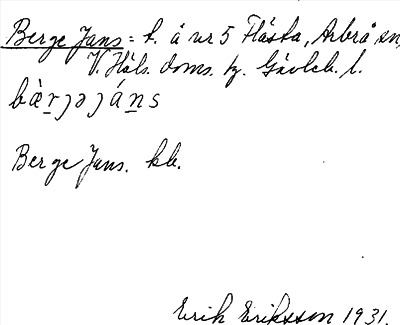 Berge Jans = h. å nr 5 Flästa, Arbrå sn,
V. Häls. doms. hg. Gävleb. l.
bæ̀rjəjáns
Berge Jans. kb.
Erik Eriksson 1931.